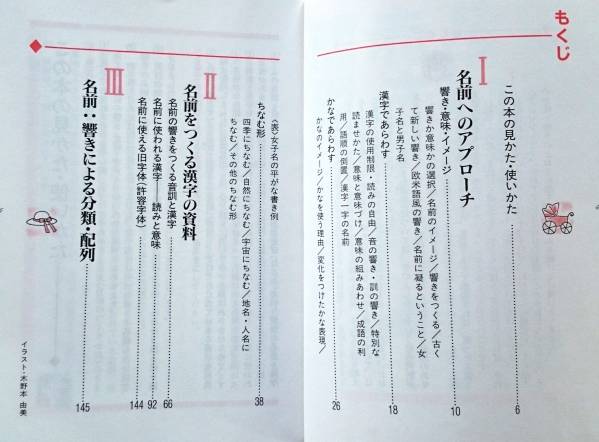 もくじ
この本の見かた・使いかた……6
I
名前へのアプローチ
響き・意味・イメージ……10
響きか意味かの選択／名前のイメージ／響きをつくる／古く
て新しい響き／欧米語風の響き／名前に凝るということ／女
子名と男子名
漢字であらわす……18
漢字の使用制限・読みの自由／音の響き・訓の響き／特別な
読ませかた／意味と意味づけ／意味の組みあわせ／成語の利
用／語順の倒置／漢字一字の名前
かなであらわす……26
かなのイメージ／かなを使う理由／変化をつけたかな表現／
〈表〉女子名の平がな書き例
ちなむ形……38
四季にちなむ／自然にちなむ／宇宙にちなむ／地名・人名に
ちなむ／その他のちなむ形
II
名前をつくる漢字の資料
名前の響きをつくる音訓と漢字……66
名前に使われる漢字──読みと意味……92
名前に使える旧字体（許容字体）……144
III
名前：響きによる分類・配列……145
イラスト・木野本 由美